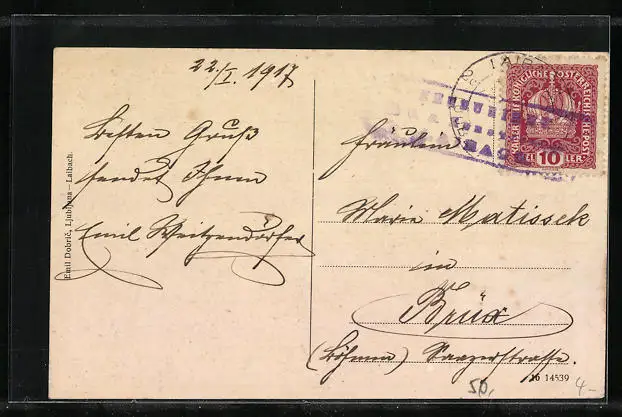 22./I. 1917
Besten Gruß
sendet Ihnen
Emil Weitzendorfer
Emil Dobrič, Ljubljana – Laibach.
Fräulein
Marie Matissek
in
Brüx
(Böhmen) Saazerstrasse.
16 14539
50,
4-
LAIB
KAISERLICHE KÖNIGLICHE ÖSTERREICHISCHE POST
10
HELLER